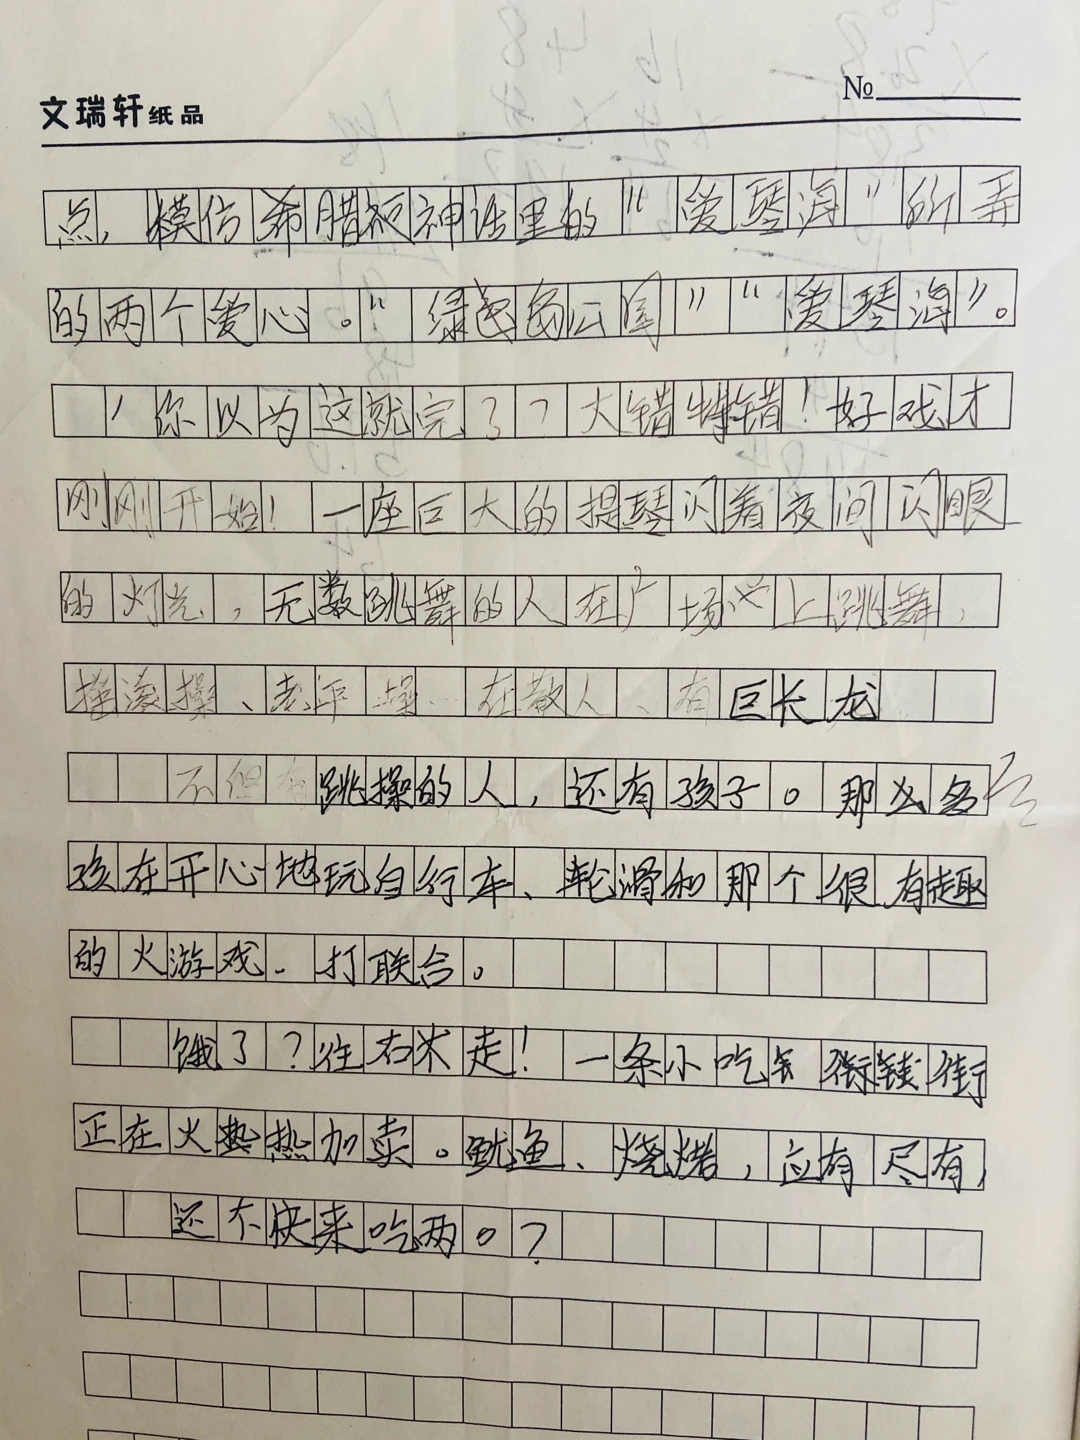 文瑞轩纸品 №
点,模仿希腊神话里的“爱琴海”所弄
的两个爱心。“绿岛公园”“爱琴海”。
你以为这就完了?大错特错!好戏才
刚刚开始!一座巨大的提琴闪着夜间闪眼
的灯光,无数跳舞的人在广场上跳舞,
摇滚操、老年操…在散人、有巨长龙
不但有跳操的人,还有孩子。那么多
孩在开心地玩自行车、轮滑和那个很有趣
的火游戏.打联合。
饿了?往右米走!一条小吃街
正在火热热加卖。鱿鱼、烧烤,应有尽有,
还不快来吃两口?